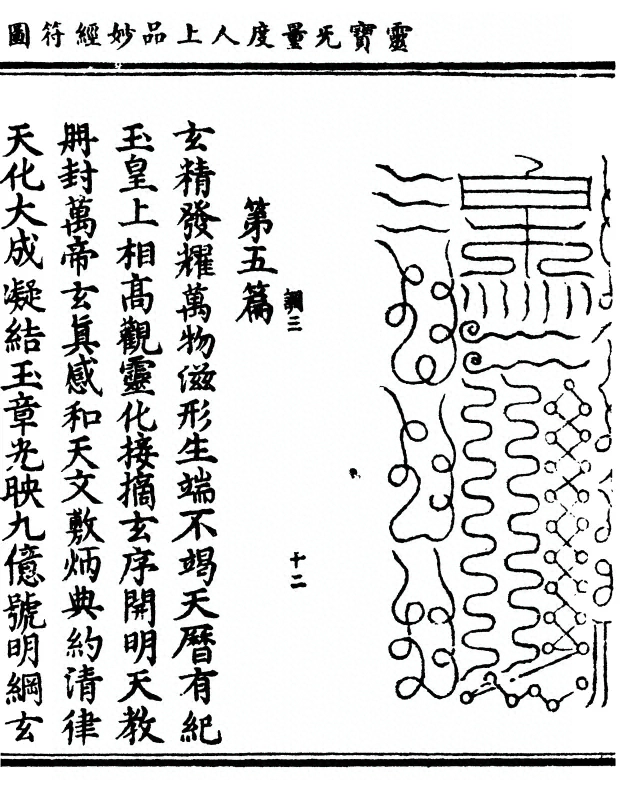 靈寶无量度人上品妙經符圖
調三
十二
第五篇
玄精發耀萬物滋形生端不竭天曆有紀
玉皇上相高觀靈化接摘玄序開明天教
冊封萬帝玄眞感和天文敷炳典約清律
天化大成凝結玉章光映九億號明綱玄